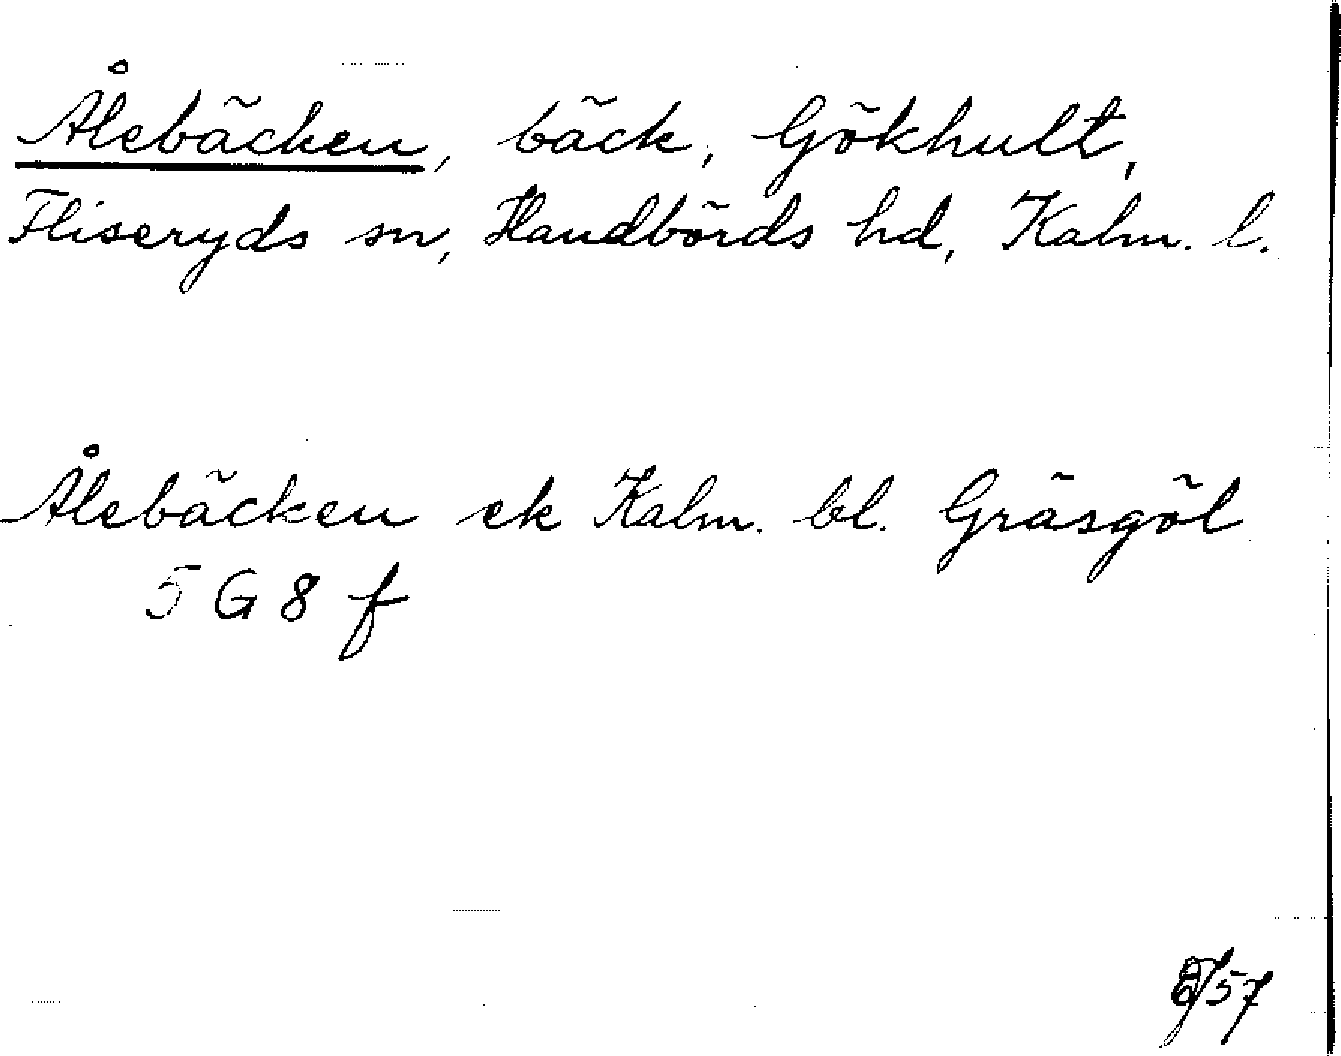 Ålebäcken, bäck, Gökhult,
Fliseryds sn, Handbörds hd, Kalm. l.
Ålebäcken ek Kalm. bl. Gräsgöl
5 G 8 f